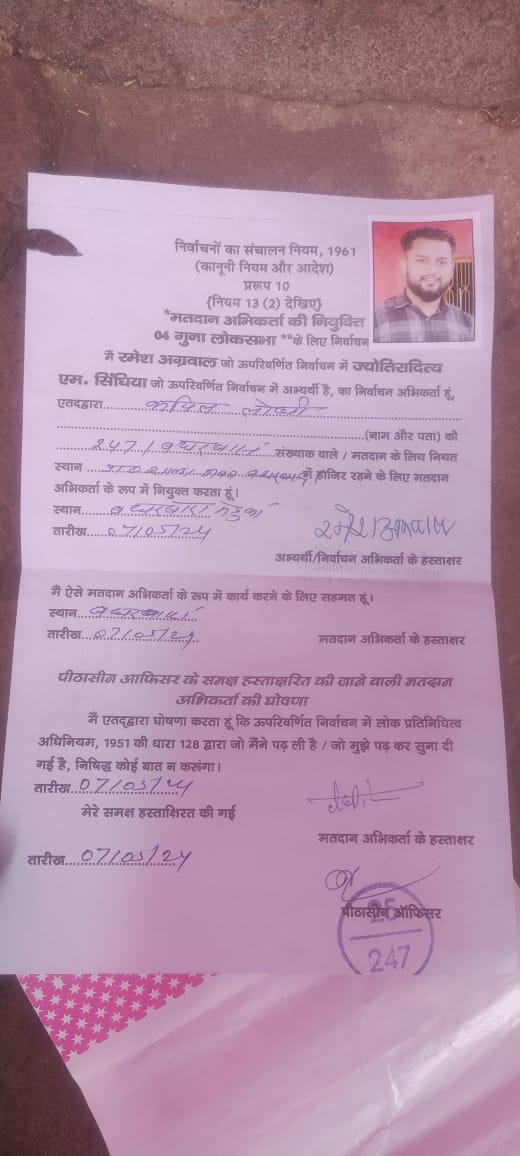 निर्वाचनों का संचालन नियम, 1961
(कानूनी नियम और आदेश)
प्ररूप 10
{नियम 13 (2) देखिए}
*मतदान अभिकर्ता की नियुक्ति
04 गुना लोकसभा **के लिए निर्वाचन
मैं रमेश अग्रवाल जो ऊपरिवर्णित निर्वाचन में ज्योतिरादित्य
एम. सिंधिया जो ऊपरिवर्णित निर्वाचन में अभ्यर्थी है, का निर्वाचन अभिकर्ता हूं,
एतदद्वारा
(नाम और पता) को
247/ संख्याक वाले / मतदान के लिय नियत
स्थान में हाजिर रहने के लिए मतदान
अभिकर्ता के रूप में नियुक्त करता हूं।
स्थान
तारीख 07/05/24
अभ्यर्थी/निर्वाचन अभिकर्ता के हस्ताक्षर
मैं ऐसे मतदान अभिकर्ता के रूप में कार्य करने के लिए सहमत हूं।
स्थान
तारीख 07/05/24 मतदान अभिकर्ता के हस्ताक्षर
पीठासीन आफिसर के समक्ष हस्ताक्षरित की जाने वाली मतदान
अभिकर्ता की घोषणा
मैं एतद्द्वारा घोषणा करता हूं कि ऊपरिवर्णित निर्वाचन में लोक प्रतिनिधित्व
अधिनियम, 1951 की धारा 128 द्वारा जो मैंने पढ़ ली है / जो मुझे पढ़ कर सुना दी
गई है, निषिद्ध कोई बात न करूंगा।
तारीख 07/05/24
मेरे समक्ष हस्ताक्षिरत की गई
मतदान अभिकर्ता के हस्ताक्षर
तारीख 07/05/24
पीठासीन ऑफिसर
25
247